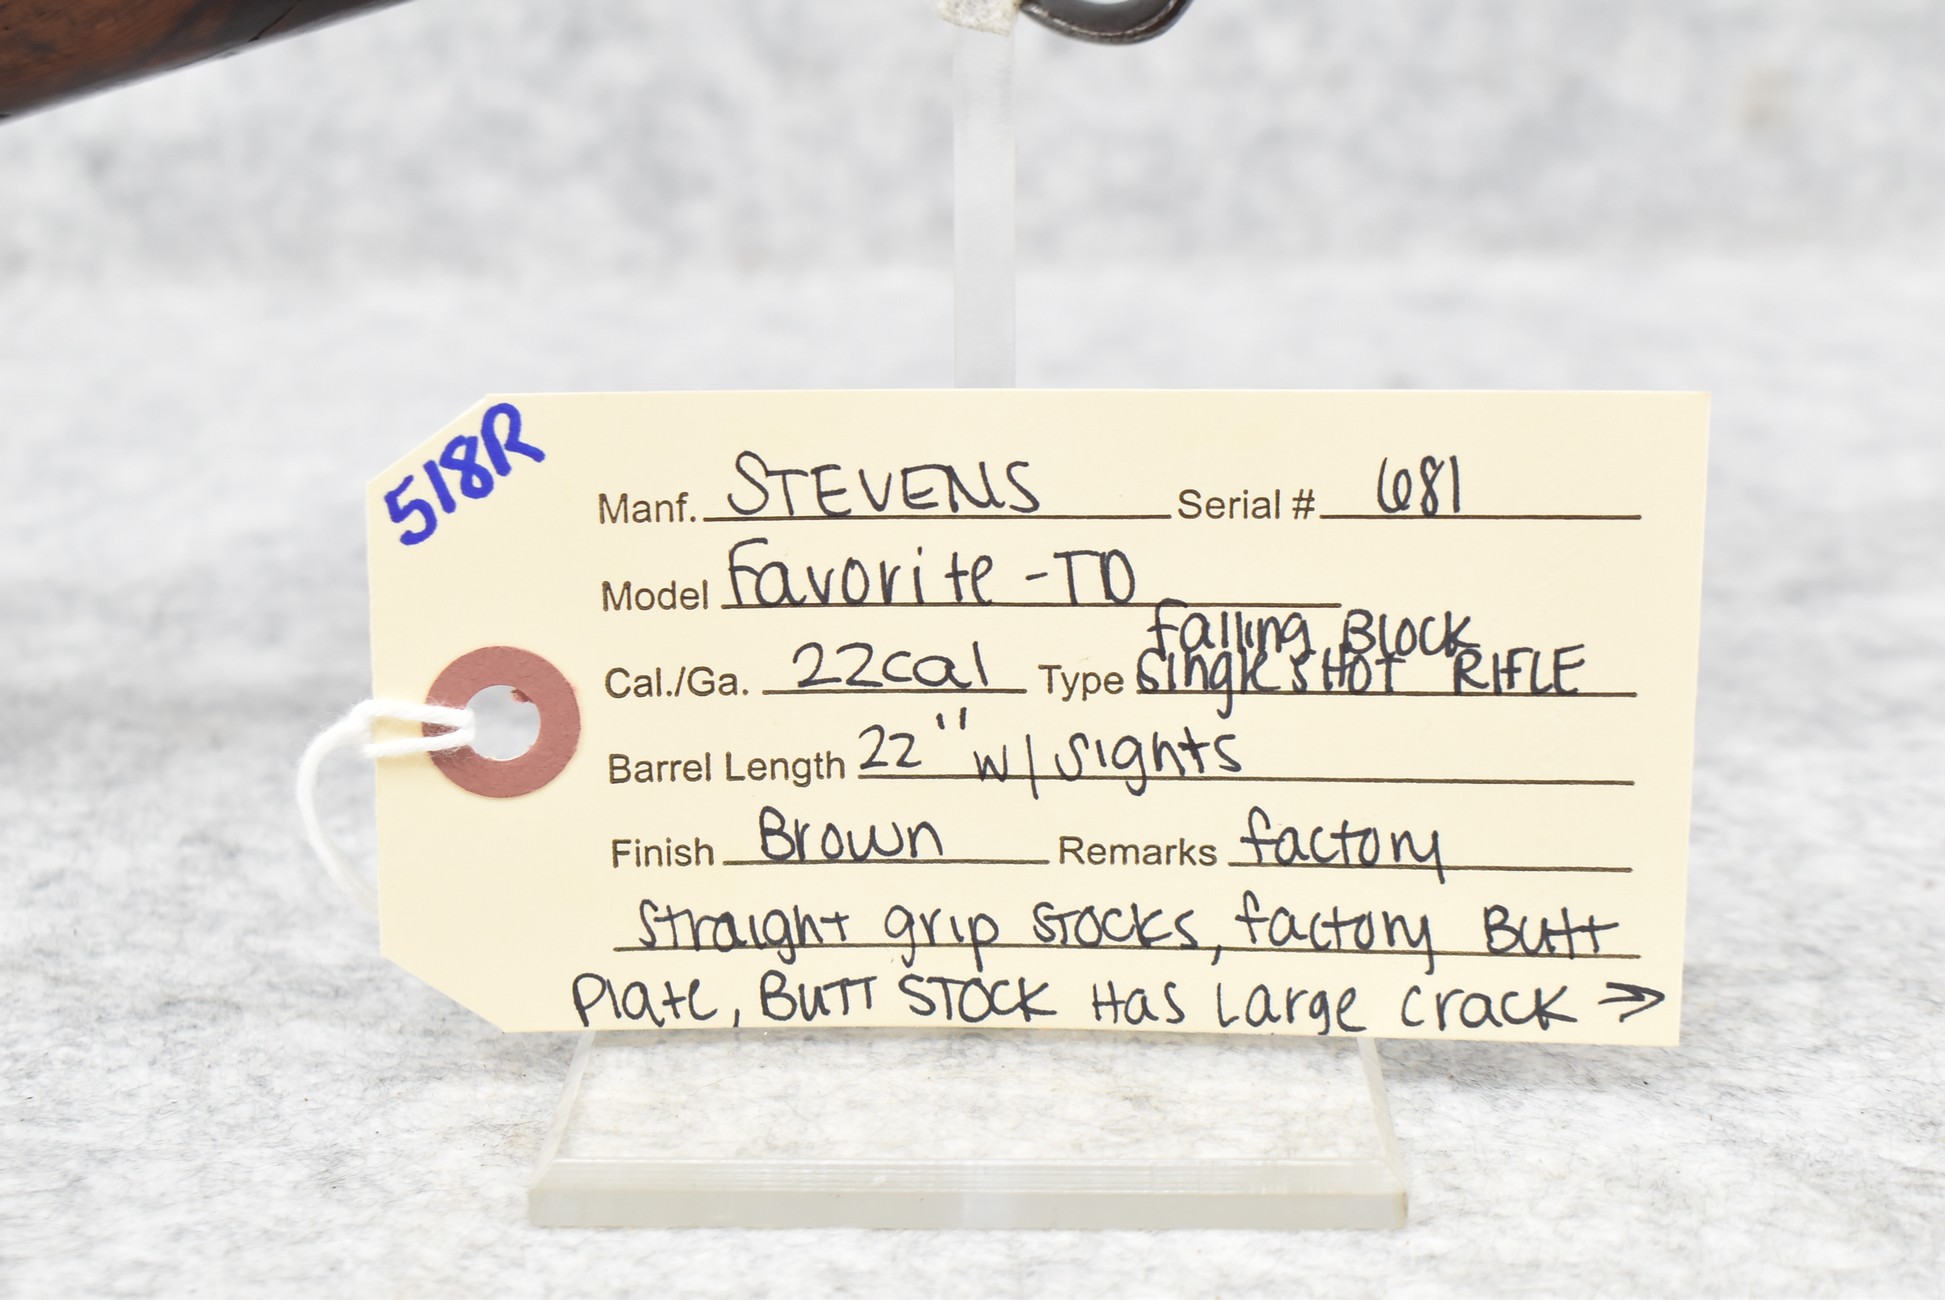 518R
Manf. STEVENS Serial # 681
Model Favorite - TD
Falling Block
Cal./Ga. 22cal Type Single SHOT RIFLE
Barrel Length 22" w/ Sights
Finish Brown Remarks factory
Straight grip STOCKS, factory Butt
Plate, BUTT STOCK Has Large crack →